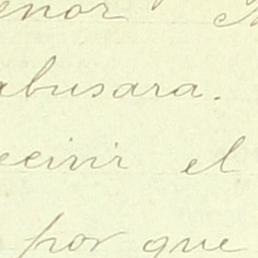 enor
abusara.
ecivir el
por que